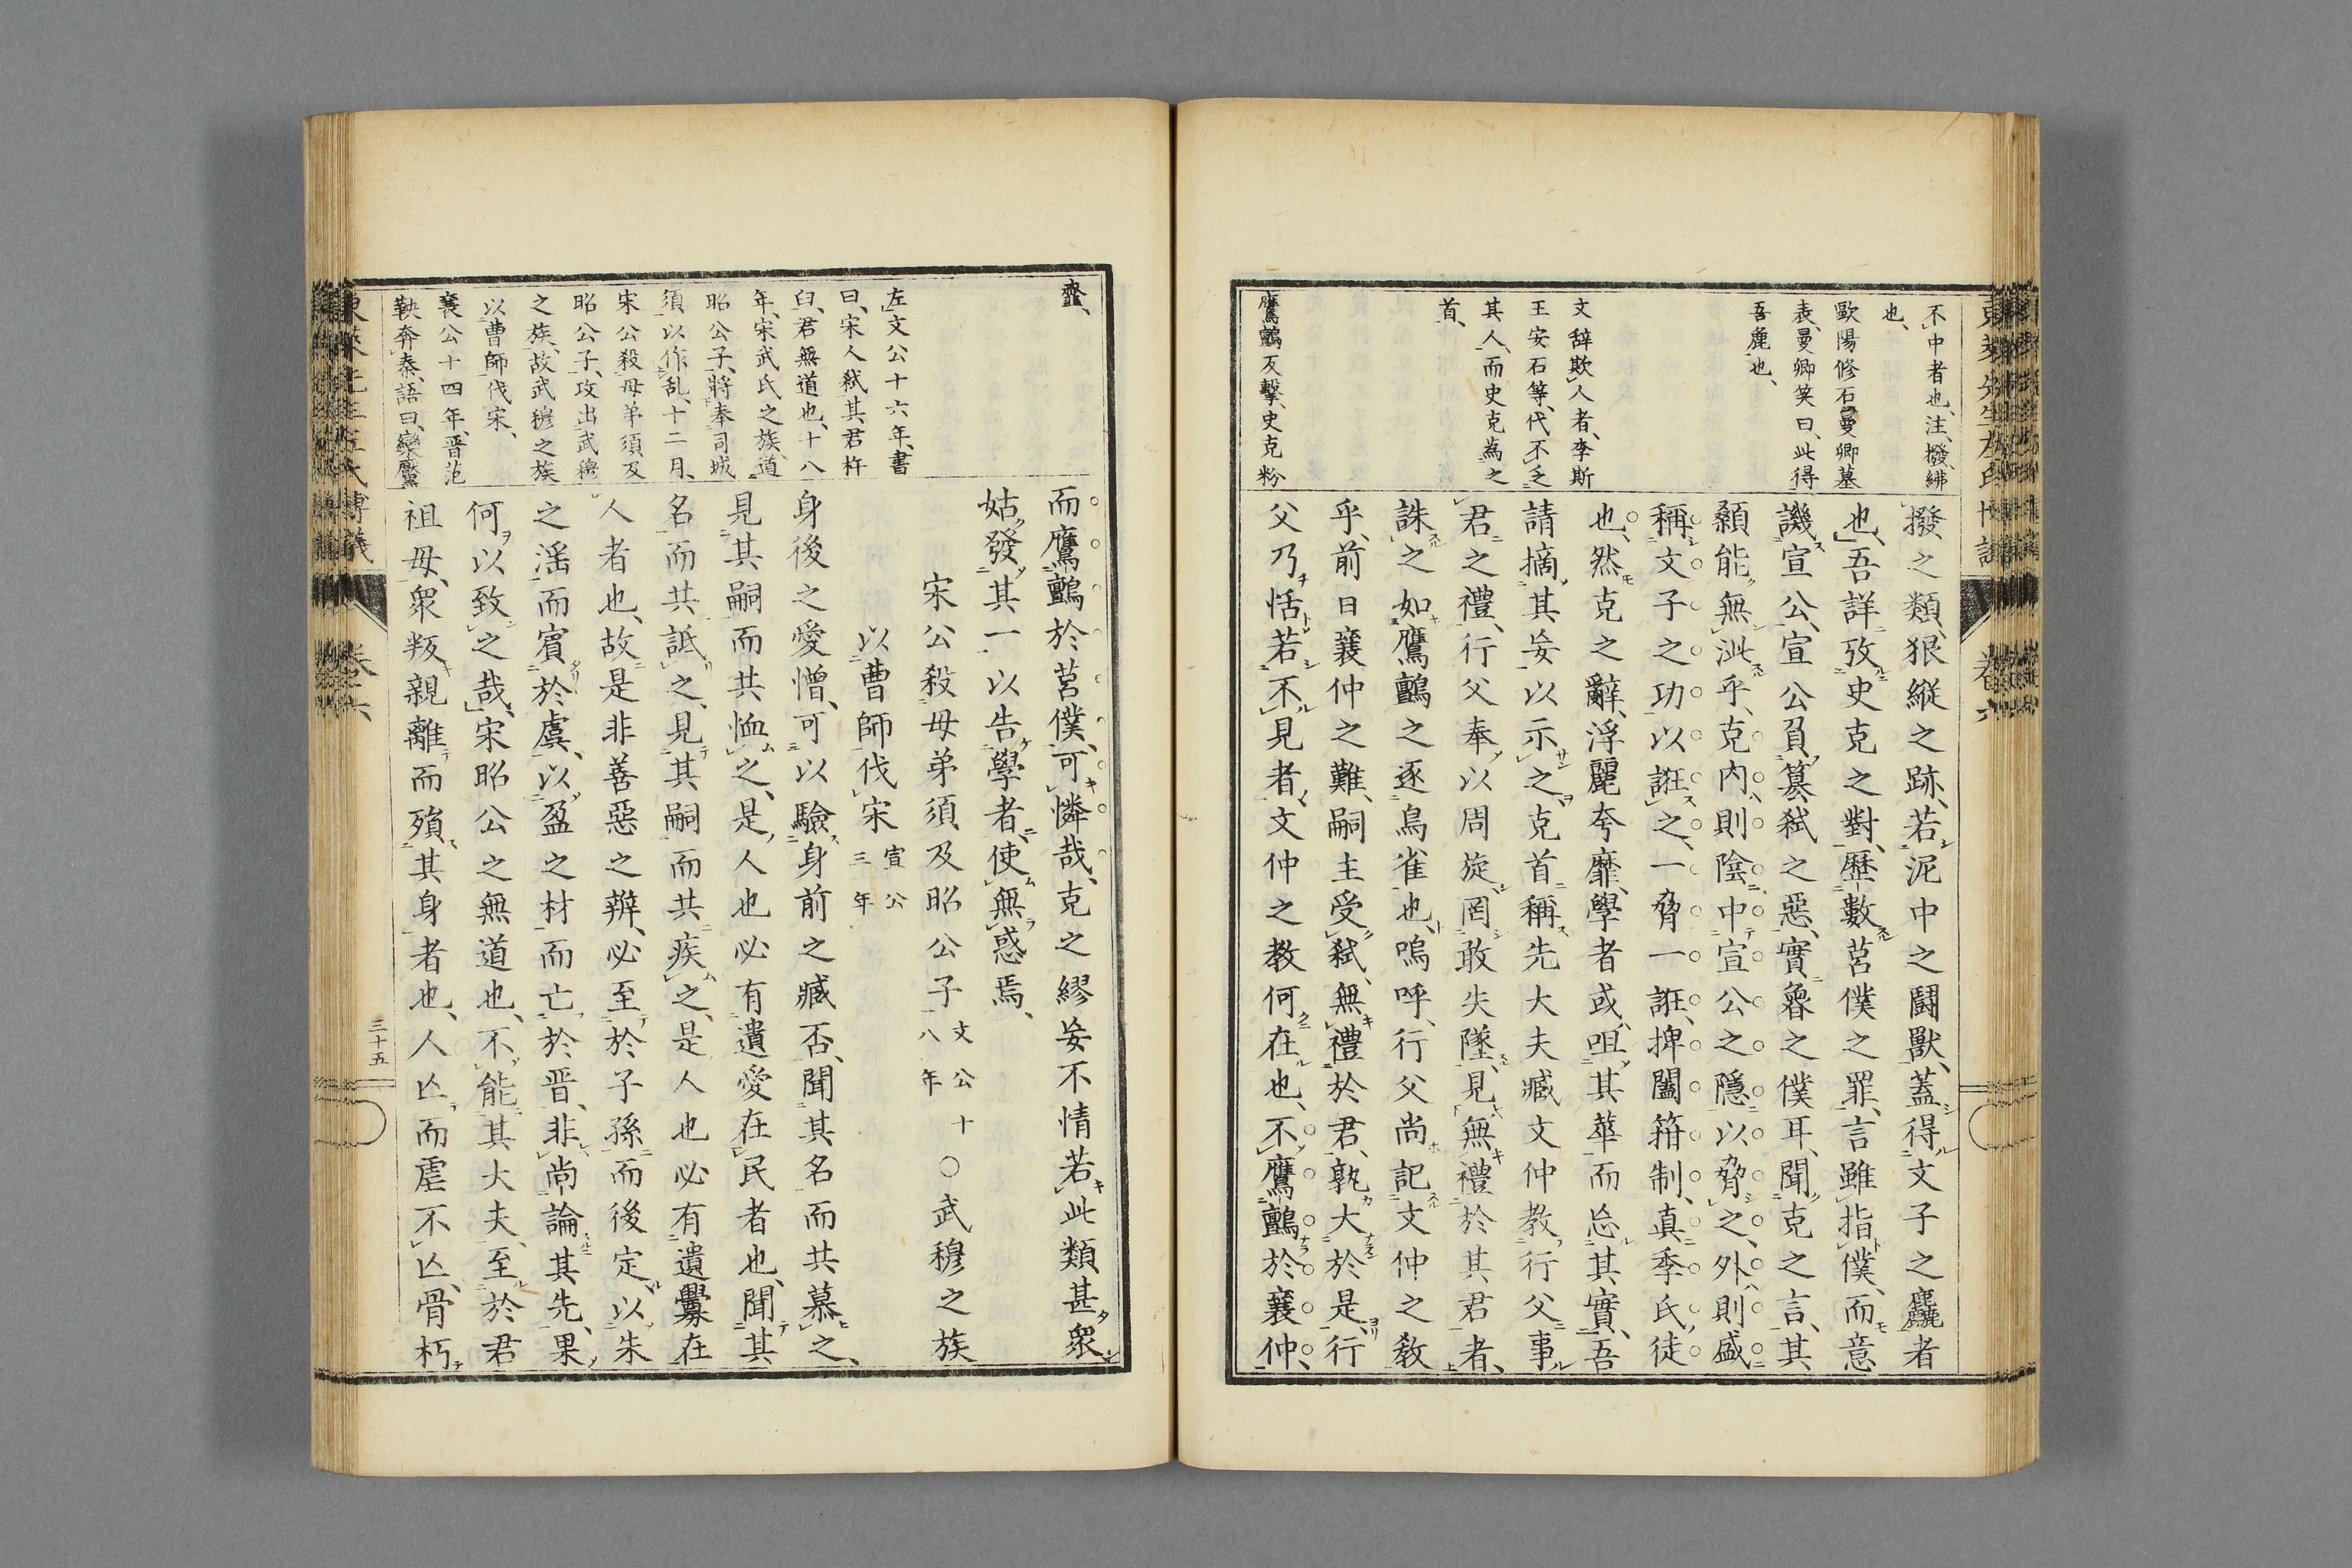 不中者也、注、撥、紼
也、
歐陽修石曼卿墓
表、曼卿笑曰、此得
吾麁也、
文辭欺人者、李斯
王安石等、代不乏
其人、而史克爲之
首、
鷹鸇反擊、史克粉
撥之類、狠縱之跡、若泥中之鬪獸、蓋得文子之麤者
也、吾詳攷史克之對、歷數莒僕之罪、言雖指僕、而意
譏宣公、宣公負簒弒之惡、實魯之僕耳、聞克之言、其
顙能無泚乎、克內則陰中宣公之隱、以脅之、外則盛
稱文子之功、以誑之、一脅一誑、捭闔箝制、真季氏徒
也、然克之辭、浮麗夸靡、學者或咀其華而忘其實、吾
請摘其妄以示之、克首稱先大夫臧文仲教行父事
君之禮、行父奉以周旋、罔敢失墜、見無禮於其君者、
誅之如鷹鸇之逐鳥雀也、嗚呼、行父尚記文仲之敎
乎、前日襄仲之難、嗣主受弒、無禮於君、孰大於是、行
父乃恬若不見者、文仲之教何在也、不鷹鸇於襄仲、
東萊先生左氏博議 卷六
齏、
左文公十六年、書
曰、宋人弒其君杵
臼、君無道也、十八
年、宋武氏之族、道
昭公子、將奉司城
須以作乱、十二月、
宋公殺母弟須及
昭公子、攻出武穆
之族、故武穆之族
以曹師伐宋、
襄公十四年、晋范
鞅奔秦、語曰、欒黶
而鷹鸇於莒僕、可憐哉、克之繆妄不情若此類甚衆、
姑發其一以告學者、使無惑焉、
宋公殺母弟須及昭公子 文公十八年 ○武穆之族
以曹師伐宋 宣公三年
身後之愛憎、可以驗身前之臧否、聞其名而共慕之、
見其嗣而共恤之、是人也必有遺愛在民者也、聞其
名而共詆之、見其嗣而共疾之、是人也必有遺釁在
人者也、故是非善惡之辨、必至於子孫而後定、以朱
之滛而賓於虞、以盈之材而亡於晋、非尚論其先、果
何以致之哉、宋昭公之無道也、不能其大夫、至於君
祖母、衆叛親離、而殞其身者也、人亾而虐不亾、骨朽
東萊先生左氏博議 卷六 三十五